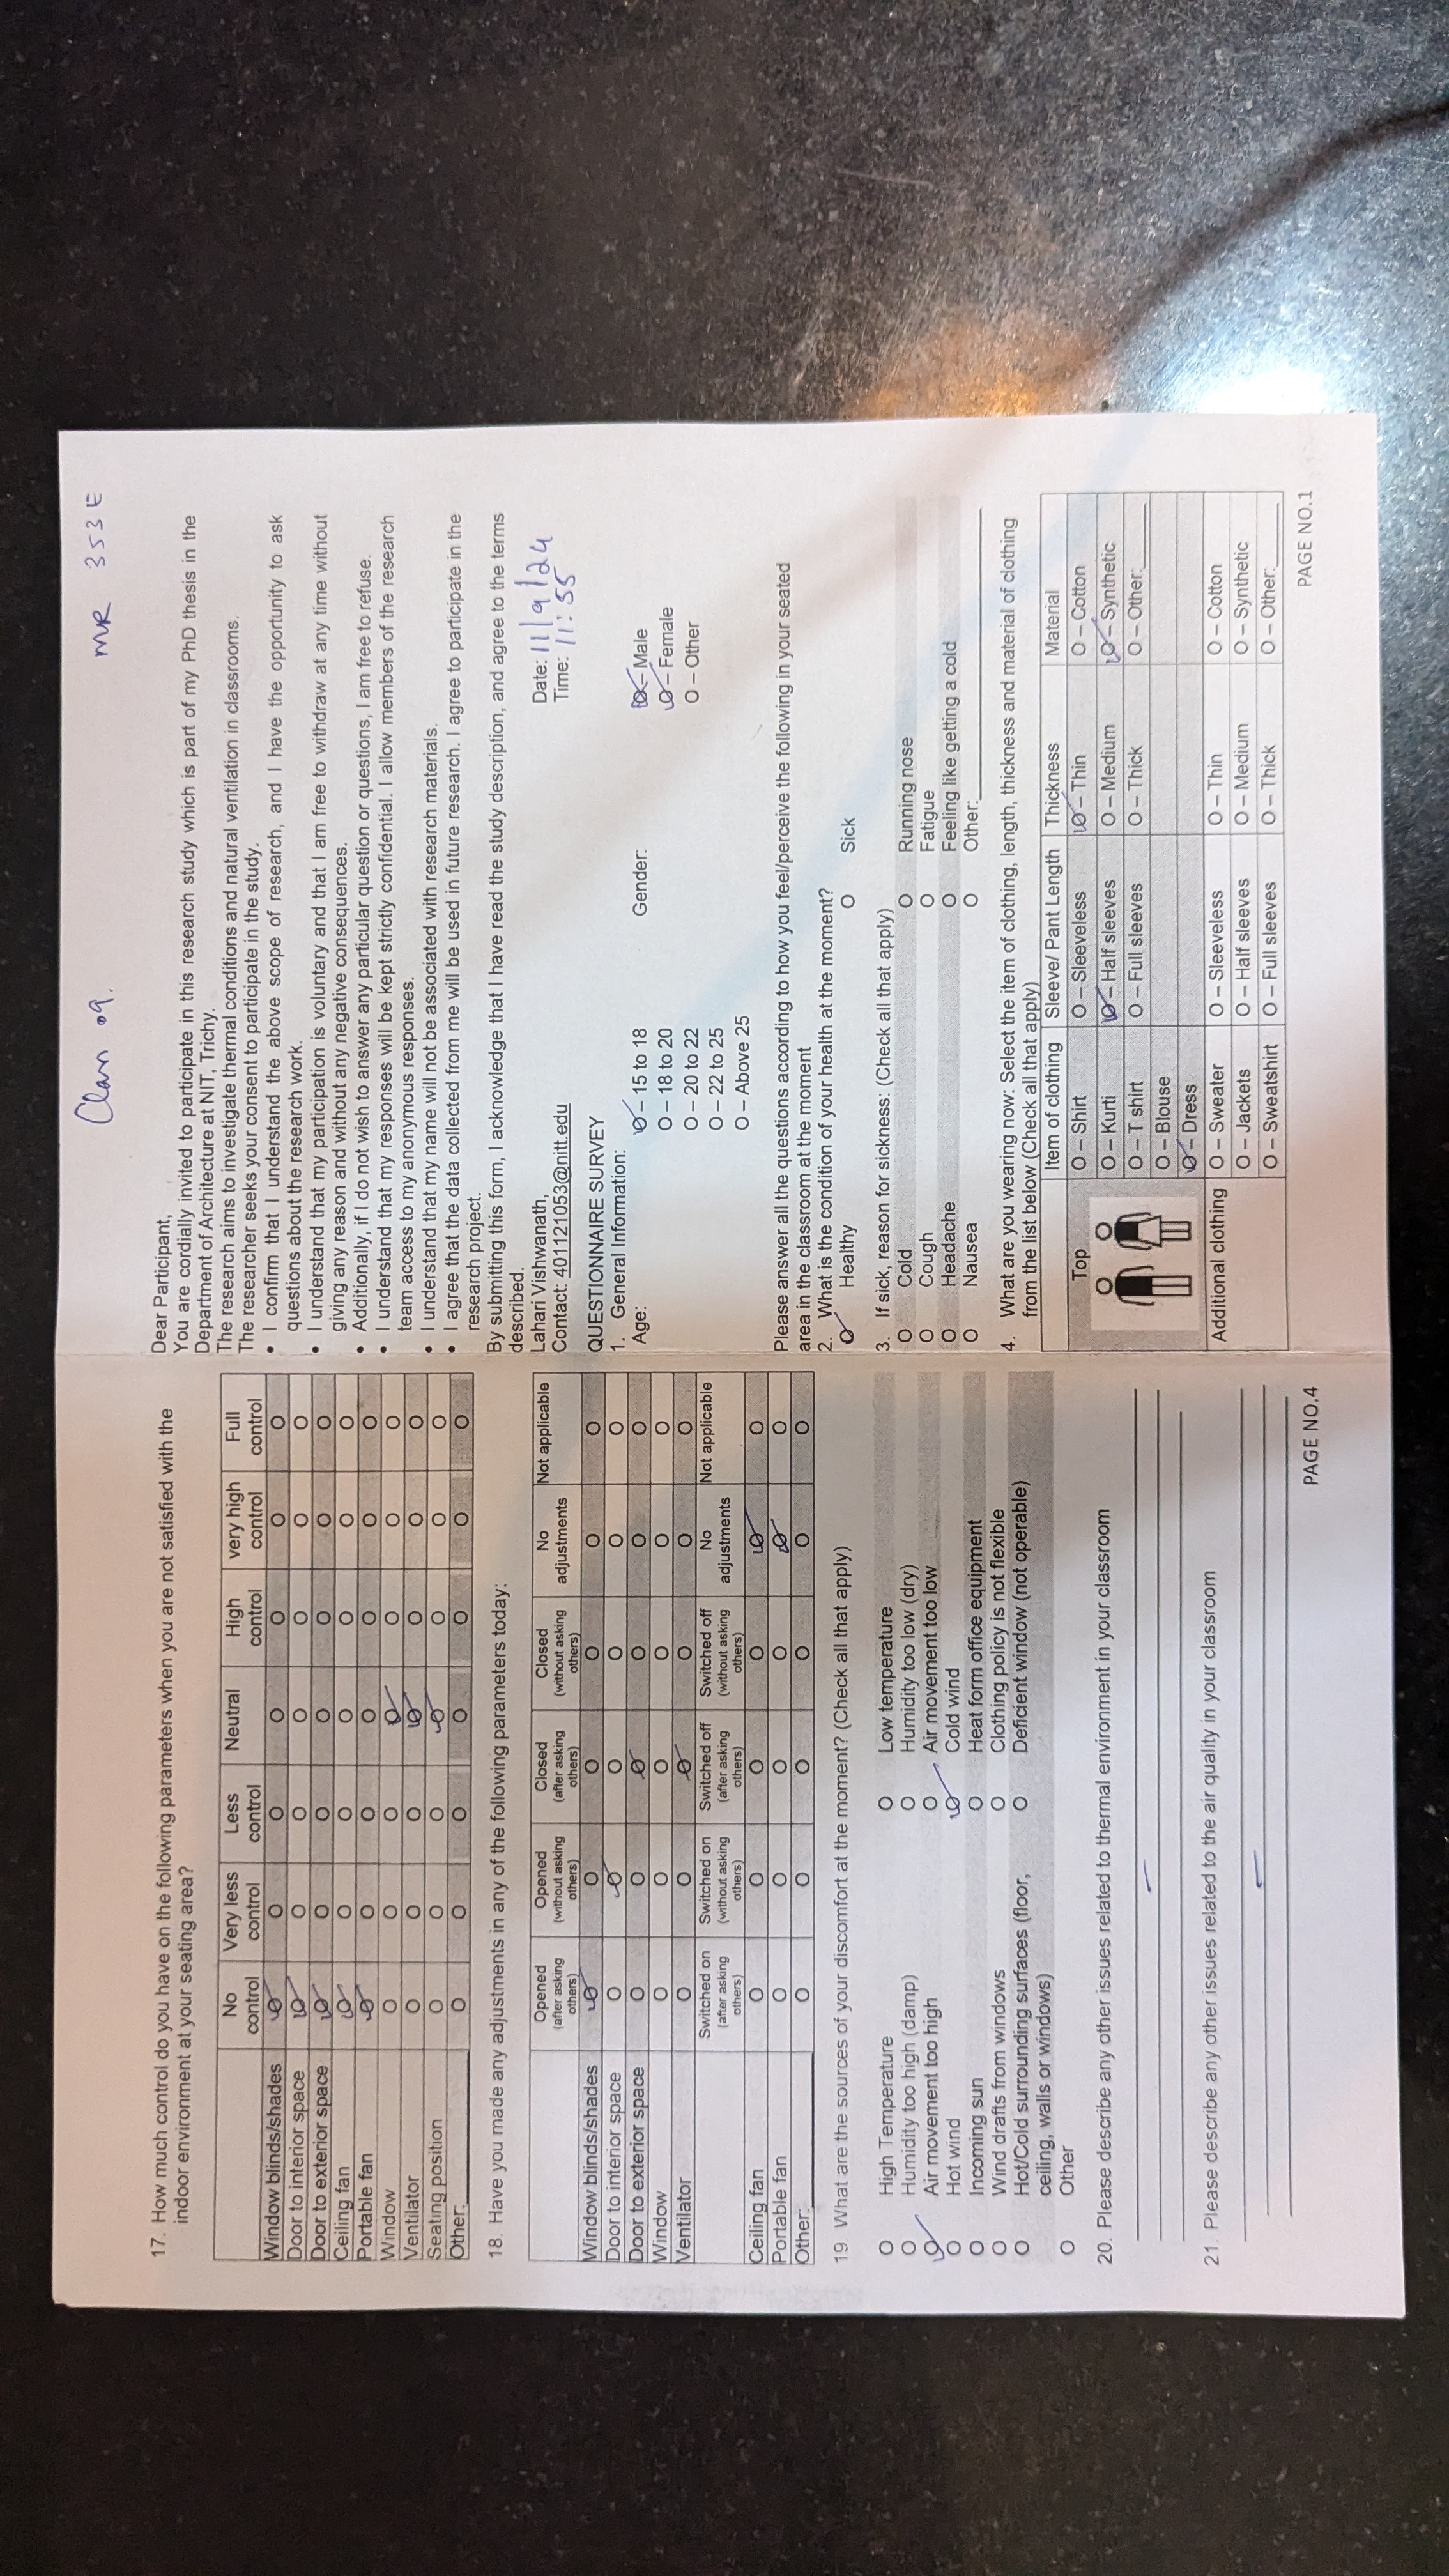 Clan 09.
MR 353E
17. How much control do you have on the following parameters when you are not satisfied with the
indoor environment at your seating area?
No control Very less control Less control Neutral High control very high control Full control
Window blinds/shades O O O O O O O
Door to interior space O O O O O O O
Door to exterior space O O O O O O O
Ceiling fan O O O O O O O
Portable fan O O O O O O O
Window O O O O O O O
Ventilator O O O O O O O
Seating position O O O O O O O
Other: O O O O O O O
18. Have you made any adjustments in any of the following parameters today:
Opened (after asking others) Opened (without asking others) Closed (after asking others) Closed (without asking others) No adjustments Not applicable
Window blinds/shades O O O O O O
Door to interior space O O O O O O
Door to exterior space O O O O O O
Window O O O O O O
Ventilator O O O O O O
Switched on (after asking others) Switched on (without asking others) Switched off (after asking others) Switched off (without asking others) No adjustments Not applicable
Ceiling fan O O O O O O
Portable fan O O O O O O
Other: O O O O O O
19. What are the sources of your discomfort at the moment? (Check all that apply)
O High Temperature O Low temperature
O Humidity too high (damp) O Humidity too low (dry)
O Air movement too high O Air movement too low
O Hot wind O Cold wind
O Incoming sun O Heat form office equipment
O Wind drafts from windows O Clothing policy is not flexible
O Hot/Cold surrounding surfaces (floor, O Deficient window (not operable)
ceiling, walls or windows)
O Other
20. Please describe any other issues related to thermal environment in your classroom
–
21. Please describe any other issues related to the air quality in your classroom
–
PAGE NO.4
Dear Participant,
You are cordially invited to participate in this research study which is part of my PhD thesis in the
Department of Architecture at NIT, Trichy.
The research aims to investigate thermal conditions and natural ventilation in classrooms.
The researcher seeks your consent to participate in the study.
• I confirm that I understand the above scope of research, and I have the opportunity to ask
questions about the research work.
• I understand that my participation is voluntary and that I am free to withdraw at any time without
giving any reason and without any negative consequences.
• Additionally, if I do not wish to answer any particular question or questions, I am free to refuse.
• I understand that my responses will be kept strictly confidential. I allow members of the research
team access to my anonymous responses.
• I understand that my name will not be associated with research materials.
• I agree that the data collected from me will be used in future research. I agree to participate in the
research project.
By submitting this form, I acknowledge that I have read the study description, and agree to the terms
described.
Lahari Vishwanath, Date: 11/9/24
Contact: 401121053@nitt.edu Time: 11:55
QUESTIONNAIRE SURVEY
1. General Information:
Age: O – 15 to 18 Gender: O – Male
O – 18 to 20 O – Female
O – 20 to 22 O – Other
O – 22 to 25
O – Above 25
Please answer all the questions according to how you feel/perceive the following in your seated
area in the classroom at the moment
2. What is the condition of your health at the moment?
O Healthy O Sick
3. If sick, reason for sickness: (Check all that apply)
O Cold O Running nose
O Cough O Fatigue
O Headache O Feeling like getting a cold
O Nausea O Other:
4. What are you wearing now: Select the item of clothing, length, thickness and material of clothing
from the list below (Check all that apply)
Item of clothing Sleeve/ Pant Length Thickness Material
Top O – Shirt O – Sleeveless O – Thin O – Cotton
O – Kurti O – Half sleeves O – Medium O – Synthetic
O – T shirt O – Full sleeves O – Thick O – Other:
O – Blouse
O – Dress
Additional clothing O – Sweater O – Sleeveless O – Thin O – Cotton
O – Jackets O – Half sleeves O – Medium O – Synthetic
O – Sweatshirt O – Full sleeves O – Thick O – Other:
PAGE NO.1